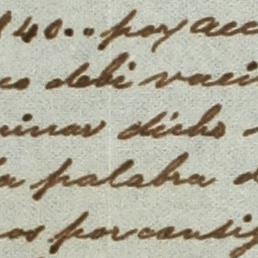 140.. por acc
co debi vaci
uinar dicho
la palabra d
nos por consig